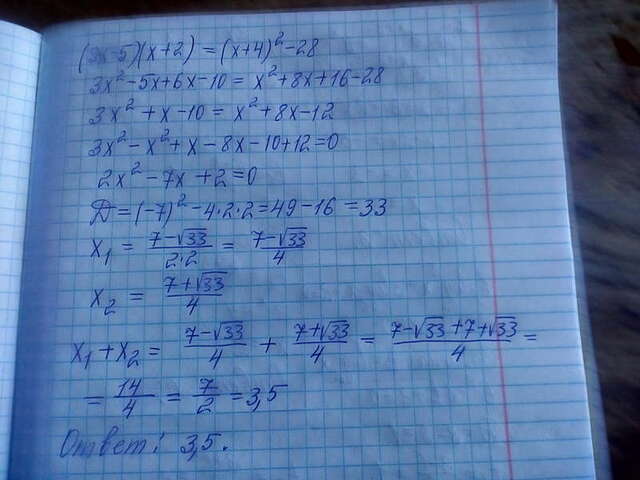 (3x-5)(x+2) = (x+4)²-28
3x²-5x+6x-10 = x²+8x+16-28
3x²+x-10 = x²+8x-12
3x²-x²+x-8x-10+12=0
2x²-7x+2=0
D=(-7)²-4·2·2=49-16=33
x₁ = (7-√33)/(2·2) = (7-√33)/4
x₂ = (7+√33)/4
x₁+x₂ = (7-√33)/4 + (7+√33)/4 = (7-√33+7+√33)/4 =
= 14/4 = 7/2 = 3,5
Ответ: 3,5.